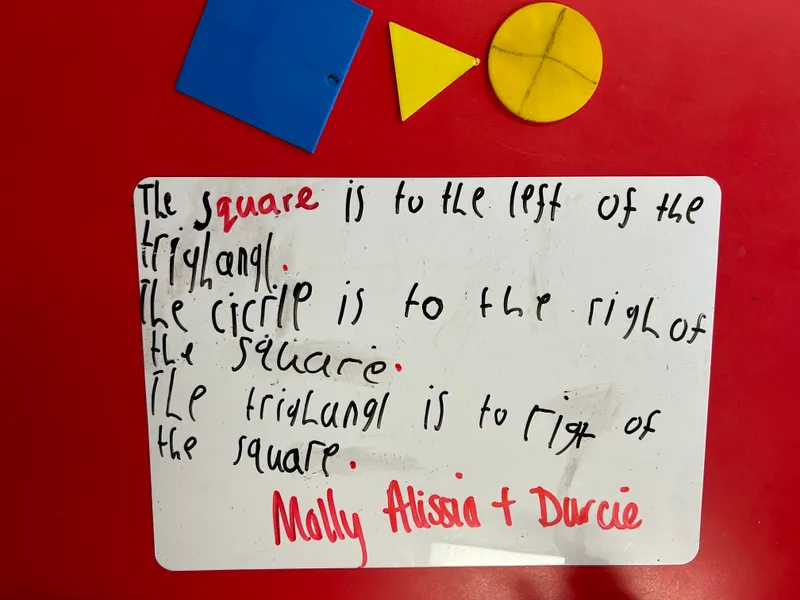 The square is to the left of the
trighangl.
The cicrle is to the righ of
the square.
The trighangl is to rigt of
the square.
Molly Alissia + Durcie